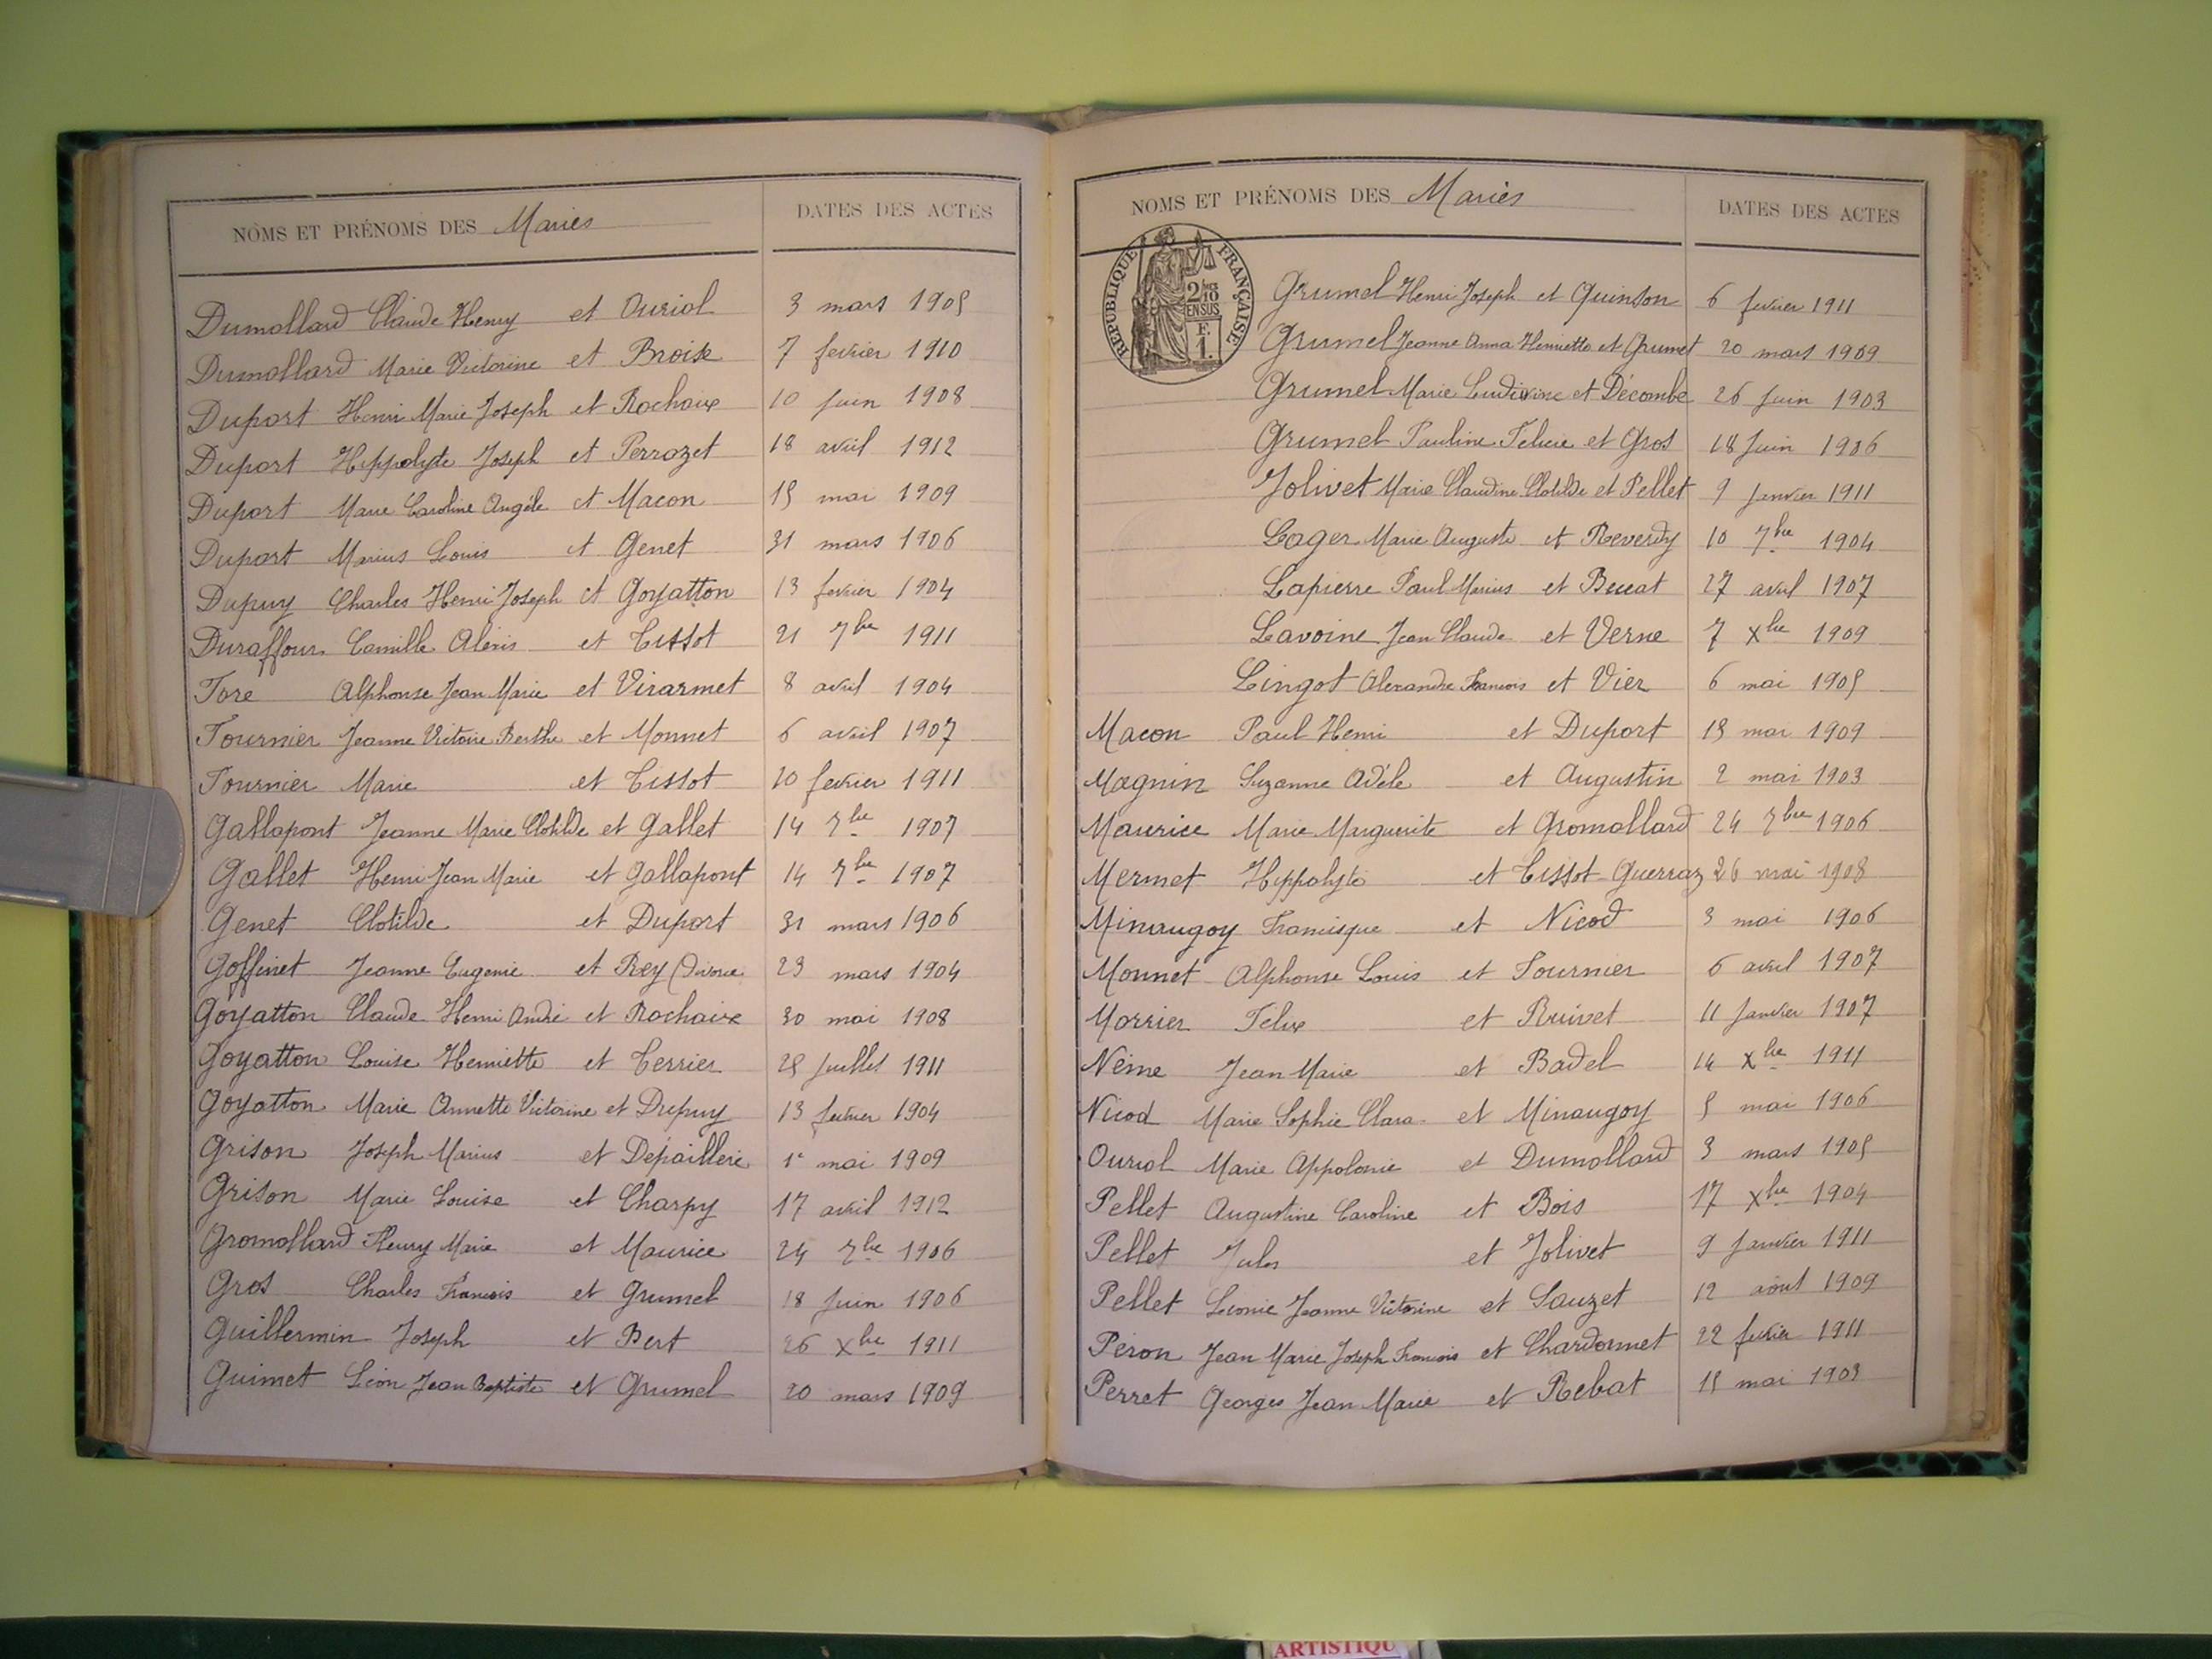 NOMS ET PRÉNOMS DES Mariés DATES DES ACTES
Dumollard Claude Henry et Ouriol 3 mars 1905
Dumollard Marie Victorine et Broise 7 fevrier 1910
Duport Henri Marie Joseph et Rochaix 10 Juin 1908
Duport Hippolyte Joseph et Perrozet 18 avril 1912
Duport Marie Caroline Angèle et Macon 15 mai 1909
Duport Marius Louis et Genet 31 mars 1906
Dupuy Charles Henri Joseph et Goyatton 13 fevrier 1904
Duraffour Camille Alexis et Tissot 21 7bre 1911
Fore Alphonse Jean Marie et Virarmet 8 avril 1904
Fournier Jeanne Victoire Berthe et Monnet 6 avril 1907
Fournier Marie et Tissot 20 fevrier 1911
Gallapont Jeanne Marie Clotilde et Gallet 14 7bre 1907
Gallet Henri Jean Marie et Gallapont 14 7bre 1907
Genet Clotilde et Duport 31 mars 1906
Goffinet Jeanne Eugenie et Rey (Divorce 23 mars 1904
Goyatton Claude Henri André et Rochaix 30 mai 1908
Goyatton Louise Henriette et Terrier 25 Juillet 1911
Goyatton Marie Annette Victorine et Dupuy 13 fevrier 1904
Grison Joseph Marius et Dépaillere 1e mai 1909
Grison Marie Louise et Charpy 17 avril 1912
Gromollard Fleury Marie et Maurice 24 7bre 1906
Gros Charles Francois et Grumel 18 Juin 1906
Guillermin Joseph et Bert 26 Xbre 1911
Guimet Léon Jean Baptiste et Grumel 20 mars 1909
NOMS ET PRÉNOMS DES Mariés DATES DES ACTES
REPUBLIQUE FRANÇAISE
2/10
EN SUS
F.
1.
Grumel Henri Joseph et Quinson 6 fevrier 1911
Grumel Jeanne Anna Henriette et Guimet 20 mars 1909
Grumel Marie Ludivine et Décombe 26 Juin 1903
Grumel Pauline Felicie et Gros 18 Juin 1906
Jolivet Marie Claudine Clotilde et Pellet 9 Janvier 1911
Lager Marie Auguste et Reverdy 10 7bre 1904
Lapierre Paul Marius et Bucat 27 avril 1907
Lavoine Jean Claude et Verne 7 Xbre 1909
Lingot Alexandre Francois et Vier 6 mai 1905
Macon Paul Henri et Duport 15 mai 1909
Magnin Suzanne Adèle et Augustin 2 mai 1903
Maurice Marie Marguerite et Gromollard 24 7bre 1906
Mermet Hippolyte et Tissot Guerraz 26 mai 1908
Minaugoy Francisque et Nicod 5 mai 1906
Monnet Alphonse Louis et Fournier 6 avril 1907
Morrier Felix et Ruivet 11 Janvier 1907
Nême Jean Marie et Badel 14 Xbre 1911
Nicod Marie Sophie Clara et Minaugoy 5 mai 1906
Ouriol Marie Appolonie et Dumollard 3 mars 1905
Pellet Augustine Caroline et Bois 17 Xbre 1904
Pellet Jules et Jolivet 9 Janvier 1911
Pellet Leonie Jeanne Victorine et Sauzet 12 août 1909
Peron Jean Marie Joseph Francois et Chardonnet 22 fevrier 1911
Perret Georges Jean Marie et Rebat 15 mai 1903
ARTISTIQU